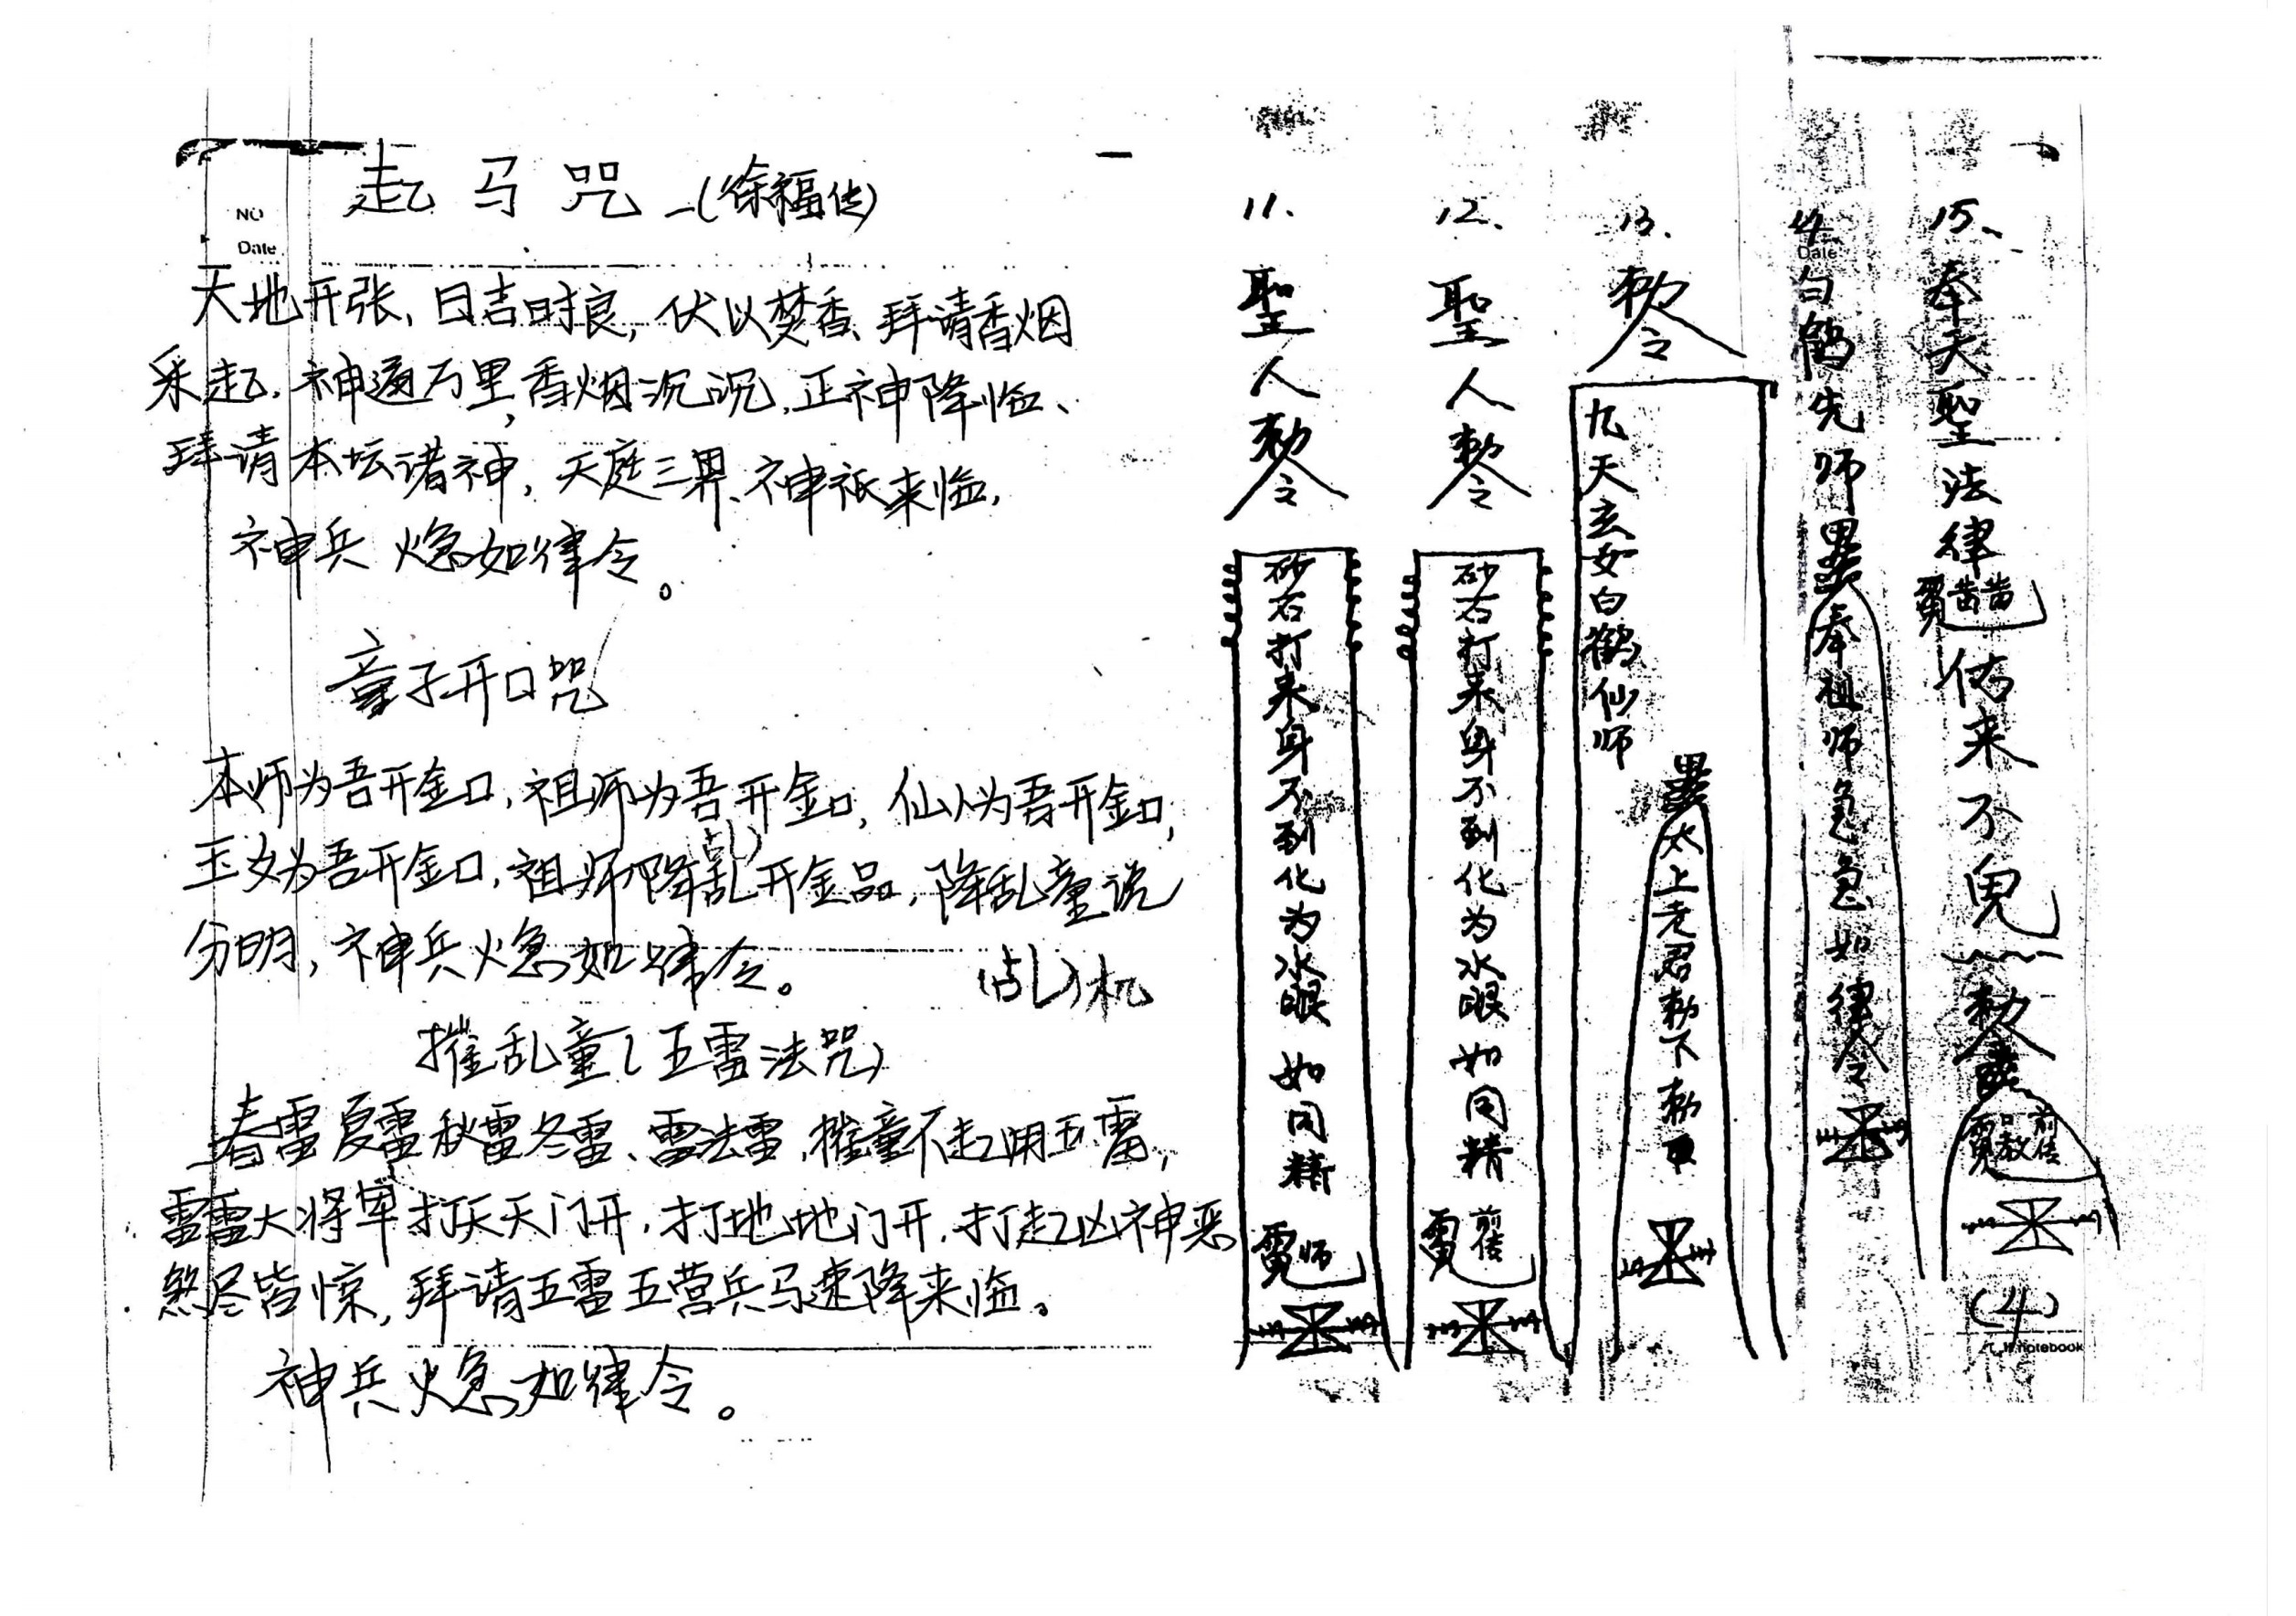 起马咒(徐福传)
NO
Date
天地开张,日吉时良,伏以焚香、拜请香烟
采起,神通万里,香烟沉沉,正神降临、
拜请本坛诸神,天庭三界、神祇来临,
神兵火急如律令。
童子开口咒
本师为吾开金口,祖师为吾开金口,仙人为吾开金口,
(占乚)
玉女为吾开金口,祖师降乱开金品,降乱童说
分明,神兵火急如律令。
(占乚)机
摧乱童(五雷法咒)
春雷夏雷秋雷冬雷、雷法雷,摧童不起用五雷,
雷雷大将军打天天门开,打地地门开,打起凶神恶
煞尽皆惊,拜请五雷五营兵马速降来临。
神兵火急如律令。
11、
聖人敕令
砂石打来身不到化为水眼如同精
12、
聖人敕令
砂石打来身不到化为水眼如同精
13、
敕令
九天玄女白鹤仙师
太上老君敕下敕
14
Date
白鹤先师
奉祖师急急如律令
15、
奉天聖法律
佑来不
敕令
(4)
notebook